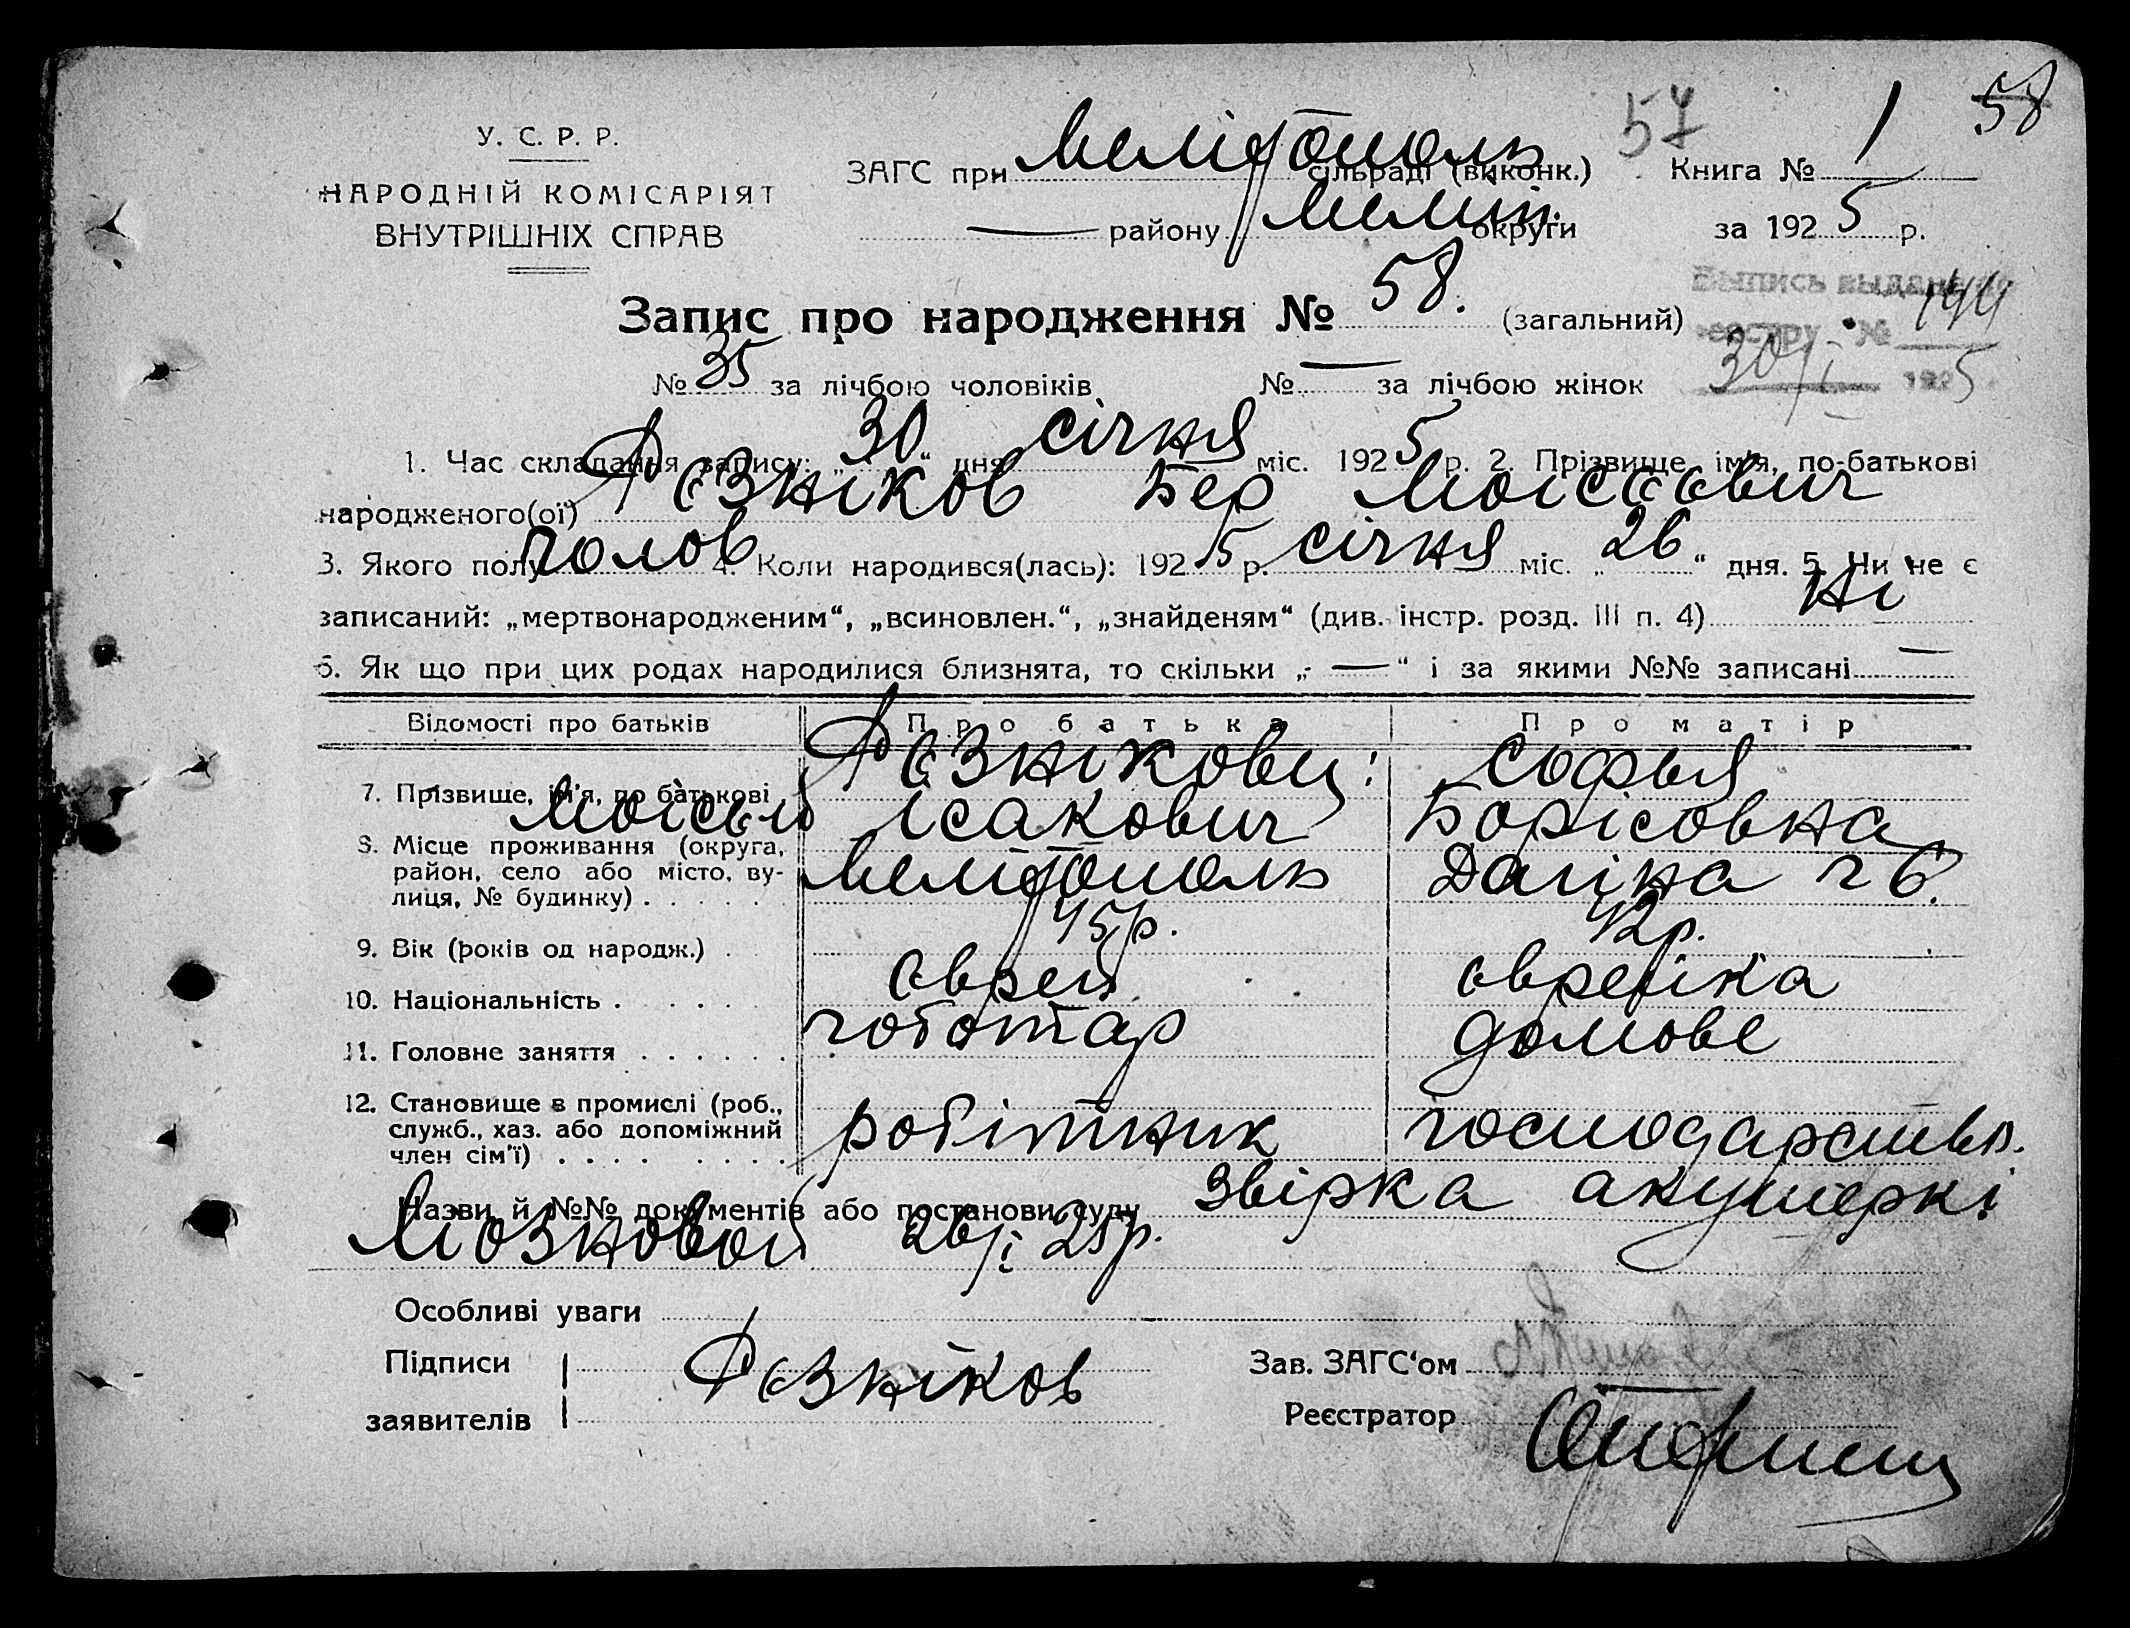 57 58
У. С. Р. Р.
НАРОДНІЙ КОМІСАРІЯТ
ВНУТРІШНІХ СПРАВ
ЗАГС при Мелітополь сільраді (виконк.) Книга № 1
— району Меліт. округи за 1925 р.
Запис про народження № 58. (загальний)
Выпись выдана по
реестру № 144
30/I 1925
№ 35 за лічбою чоловіків № — за лічбою жінок
1. Час складання запису: „30“ дня січня міс. 1925 р. 2. Прізвище, ім'я, по-батькові
народженого(ої) Рєзніков Бер Моісєєвич
3. Якого полу чолов 4. Коли народився(лась): 1925 р. січня міс. „26“ дня. 5. Чи не є
записаний: „мертвонародженим“, „всиновлен.“, „знайденям“ (див. інстр. розд. III п. 4) Ні
6. Як що при цих родах народилися близнята, то скільки „—“ і за якими №№ записані —
Відомості про батьків Про батька Про матір
7. Прізвище, ім'я, по батькові Рєзнікови: Софья
Моісєй Ісакович Борісовна
8. Місце проживання (округа, район, село або місто, вулиця, № будинку) Мелітополь ч 6.
9. Вік (років од народж.) 45 р. 42 р.
10. Національність єврей єврейка
11. Головне заняття чоботар домове
12. Становище в промислі (роб., служб., хаз. або допоміжний член сім'ї) робітник господарство.
Назви й №№ документів або постанови суду Звірка акушеркі
Мозковой 26/I 25 р.
Особливі уваги
Підписи Рєзніков Зав. ЗАГС'ом
заявителів Реєстратор